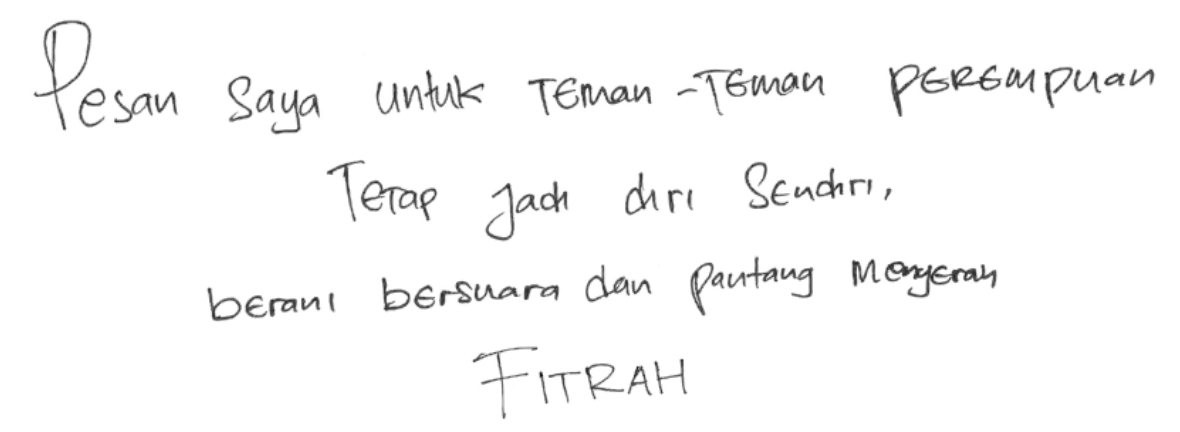 Pesan Saya untuk Teman-Teman perempuan
Tetap jadi diri Sendiri,
berani bersuara dan pantang Menyerah
FITRAH